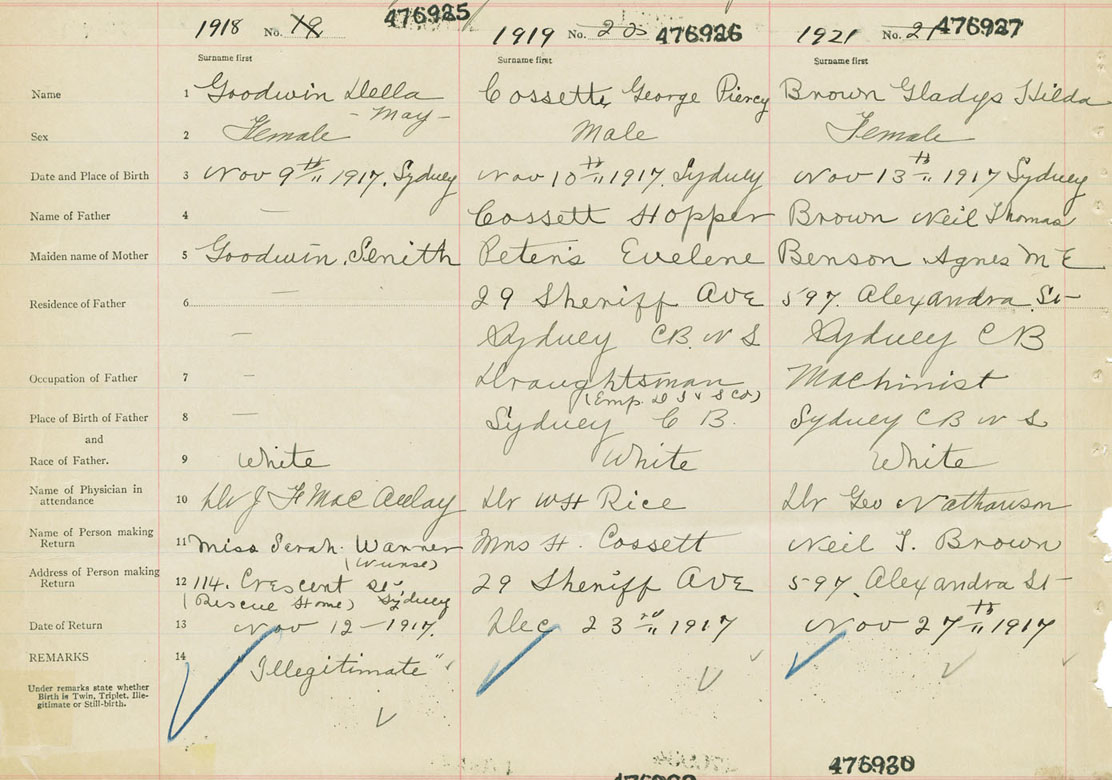 1918 No. 19 476925
1919 No. 20 476926
1921 No. 21 476927
Surname first Surname first Surname first
Name 1 Goodwin Della Cossette George Piercy Brown Gladys Hilda
- May -
Sex 2 Female Male Female
Date and Place of Birth 3 Nov 9th 1917. Sydney Nov 10th 1917. Sydney Nov 13th 1917 Sydney
Name of Father 4 — Cossett Hopper Brown Neil Thomas
Maiden name of Mother 5 Goodwin, Senith Peters Evelene Benson Agnes M E
Residence of Father 6 — 29 Sheriff Ave 597. Alexandra St
— Sydney CB. N S Sydney CB
Occupation of Father 7 — Draughtsman Machinist
(Emp. D I & S Co)
Place of Birth of Father 8 — Sydney C B. Sydney CB N S
and
Race of Father. 9 White White White
Name of Physician in
attendance 10 Dr J F MacAulay Dr WH Rice Dr Geo Nathanson
Name of Person making
Return 11 Miss Serah Warner Mrs H. Cossett Neil T. Brown
(Nurse)
Address of Person making
Return 12 114. Crescent St 29 Sheriff Ave 597. Alexandra St
(Rescue Home) Sydney
Date of Return 13 Nov 12 - 1917. Dec 23rd 1917 Nov 27th 1917
REMARKS 14 "Illegitimate"
Under remarks state whether
Birth is Twin, Triplet, Ille-
gitimate or Still-birth.
476930